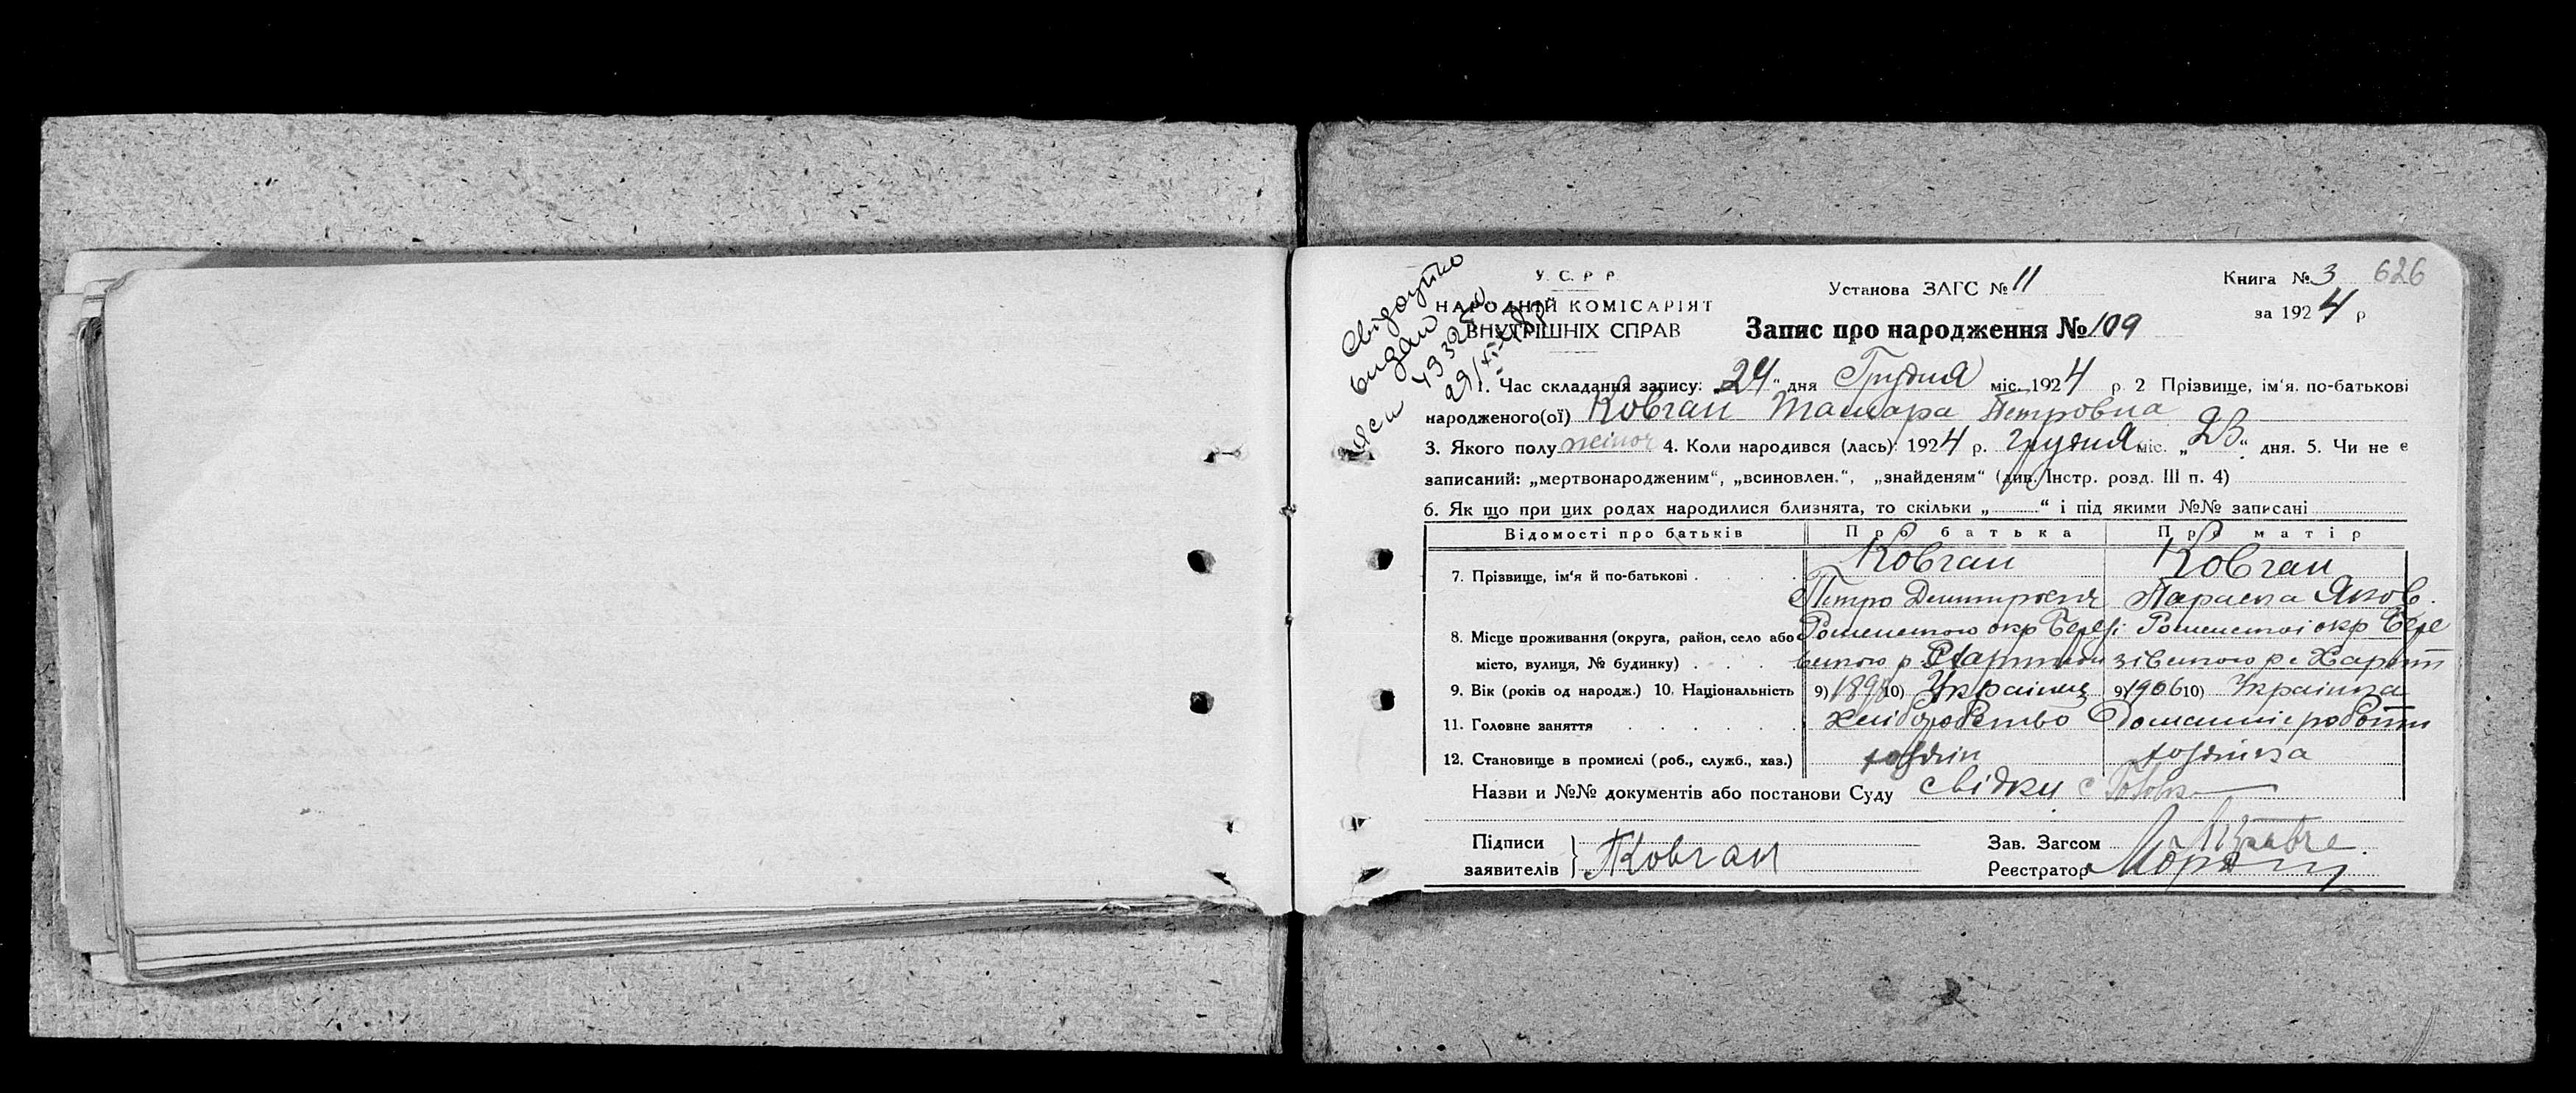 Свідоцтво
видано
У. С. Р. Р.
НАРОДНІЙ КОМІСАРІЯТ
ВНУТРІШНІХ СПРАВ
Установа ЗАГС № 11
Книга № 3 626
за 1924 р
Запис про народження № 109
1. Час складання запису: „24“ дня Грудня міс. 1924 р 2 Прізвище, ім'я, по-батькові
народженого(ої) Ковган Тамара Петровна
3. Якого полу жіноч 4. Коли народився (лась): 1924 р. грудня міс. „23“ дня. 5. Чи не є
записаний: „мертвонародженим“, „всиновлен.“, „знайденям“ (див. Інстр. розд. III п. 4)
6. Як що при цих родах народилися близнята, то скільки „ “ і під якими №№ записані
Відомості про батьків Про батька Про матір
7. Прізвище, ім'я й по-батькові Ковган Ковган
Петро Параска Яков.
8. Місце проживання (округа, район, село або Роменською окр Роменської окр Бере
місто, вулиця, № будинку)
9. Вік (років од народж.) 10. Національність 9) 10) Українец 9) 1906 10) Українка
11. Головне заняття хліборобство Домашні роботи
12. Становище в промислі (роб., служб., хаз.)
Назви и №№ документів або постанови Суду свідки
Підписи
заявителів } Ковган
Зав. Загсом
Реєстратор